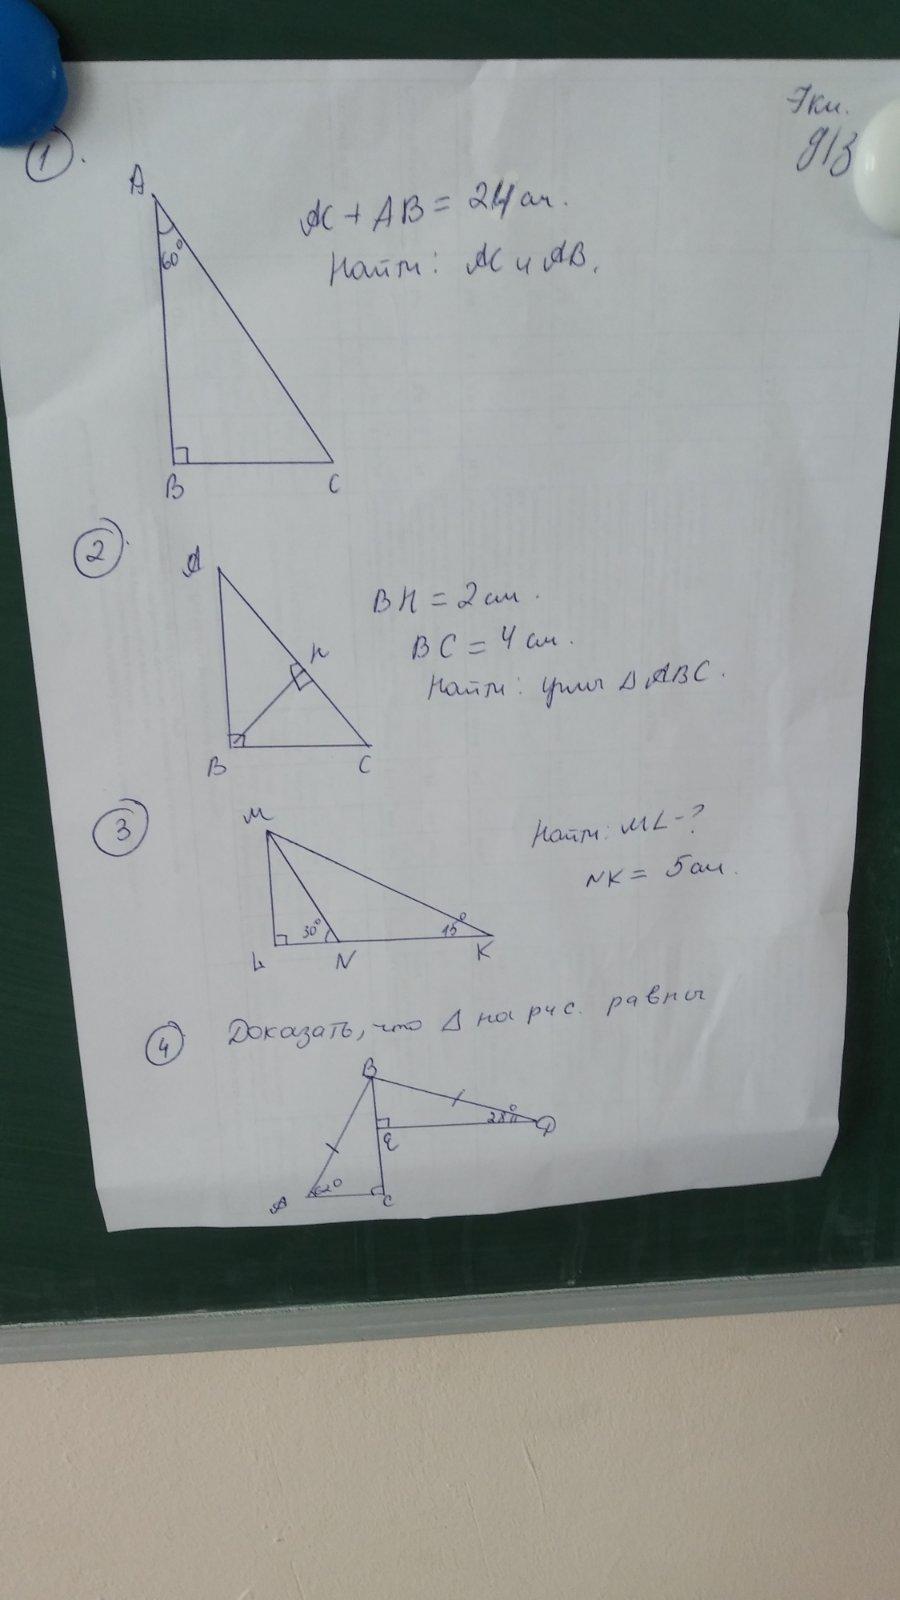 7 кл.
д/з
1.
A
60°
B
C
AC + AB = 24 см.
Найти: AC и AB.
2.
A
H
B
C
BH = 2 см.
BC = 4 см.
Найти: углы Δ ABC.
3
M
30°
15°
L
N
K
Найти: ML-?
NK = 5 см.
4
Доказать, что Δ на рис. равны
B
28°
D
E
A
62°
C